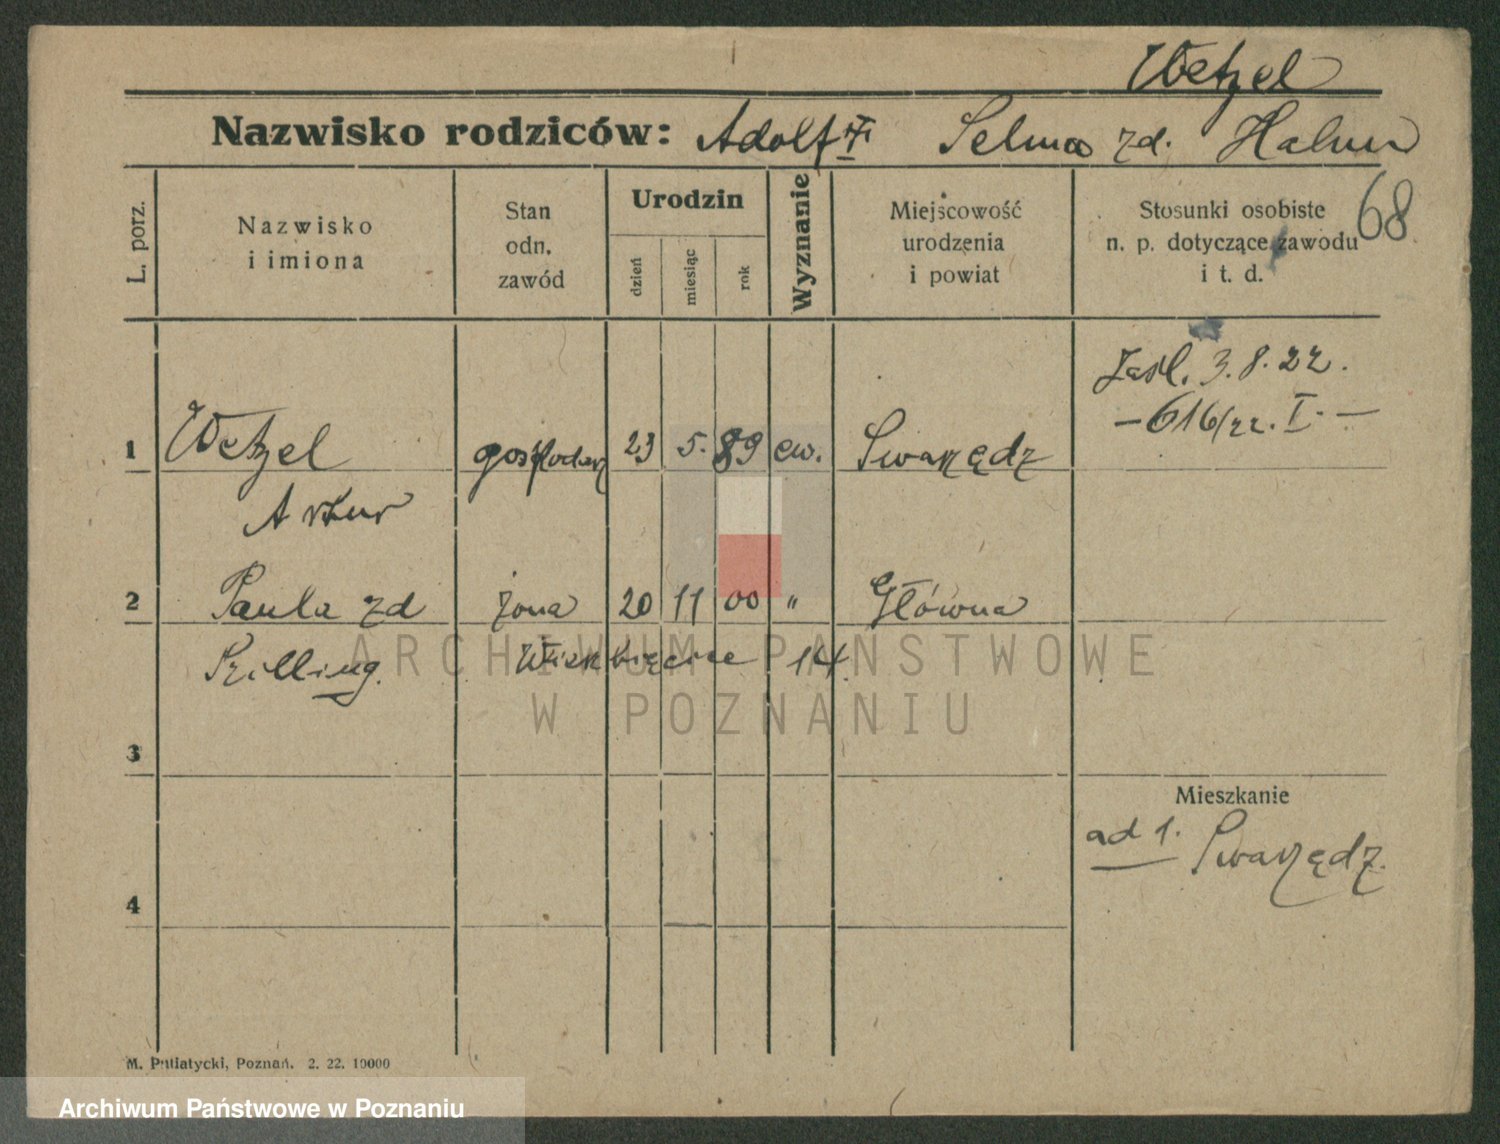 Wetzel
Nazwisko rodziców: Adolf Selma zd. Hahn
68
L. porz.
Nazwisko
i imiona
Stan
odn.
zawód
Urodzin
dzień
miesiąc
rok
Wyznanie
Miejscowość
urodzenia
i powiat
Stosunki osobiste
n. p. dotyczące zawodu
i t. d.
3.8.22.
- 616/22. I. -
1 Wetzel gospodarz 23 5. 89 ew. Swarzędz
Artur
2 Paula zd żona 20 11 00 " Główna
Szilling. 14.
3
Mieszkanie
ad 1. Swarzędz.
4
M. Putiatycki, Poznań. 2. 22. 10000
ARCHIWUM PAŃSTWOWE
W POZNANIU
Archiwum Państwowe w Poznaniu